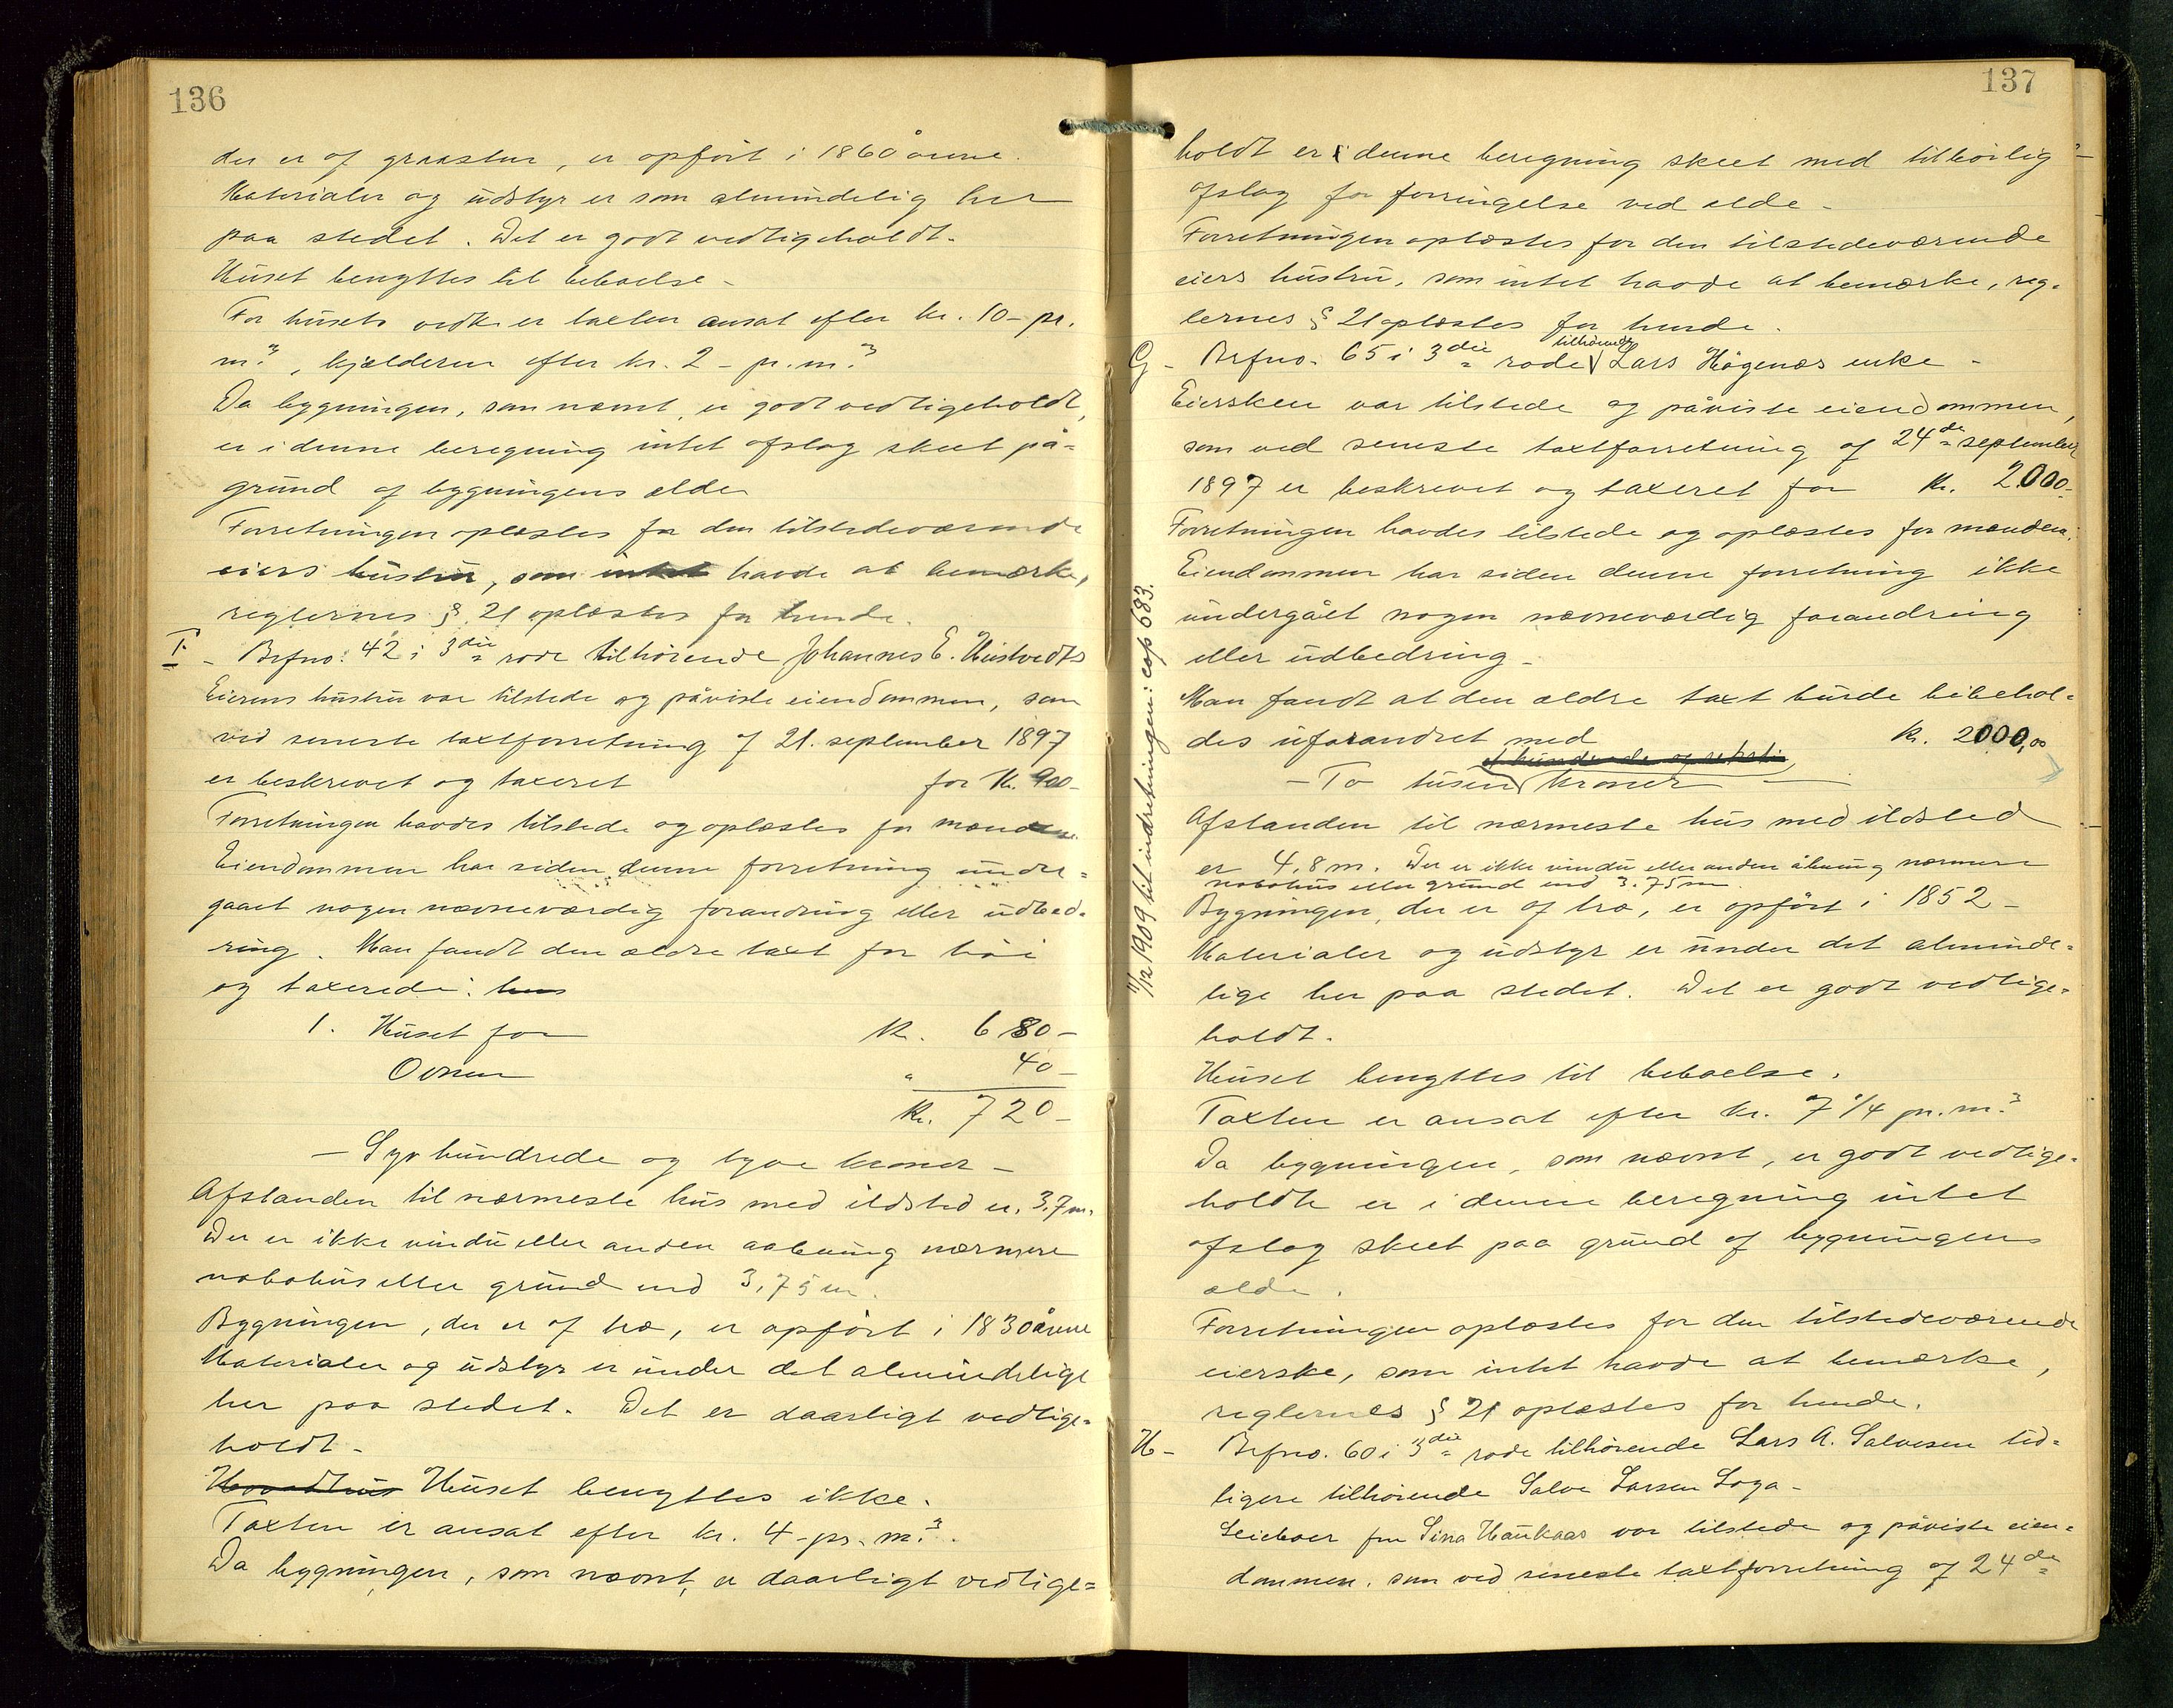 136
der er af graasten, er opført i 1860 årene.
Materialer og üdstyr er som almindelig her
paa stedet. Det er godt vedligeholdt.
Hüset benyttes til beboelse.
For hüsets vedk er taxten ansat efter kr. 10- pr.
m.³, kjælderen efter kr. 2 - pr. m.³
Da bygningen, som nævnt, er godt vedligeholdt,
er i denne beregning intet afslag skeet på-
gründ af bygningens ælde
Forretningen oplæstes for den tilstedeværende
eiers hüstrü, som intet havde at bemærke,
reglernes § 21 oplæstes for hende.
F. - Brfno: 42 i 3die rode tilhörende Johannes E. Hüstvedts
Eierens hüstrü var tilstede og påviste eiendommen, som
ved seneste taxtforretning af 21. september 1897
er beskrevet og taxeret for Kr. 900-
Forretningen havdes tilstede og oplæstes for mændene.
Eiendommen har siden denne forretning ünder-
gaaet nogen nævneværdig forandring eller üdbed-
ring. Man fandt den ældre taxt for høi
og taxerede: hus
1. Hüset for kr. 680-
Ovnen " 40-
Kr. 720-
- Syv hündrede og tyve kroner -
Afstanden til nærmeste hüs med ildsted er. 3,7 m.
Der er ikke vindü eller anden aabning nærmere
nabohüs eller gründ end 3,75 m.
Bygningen, der er af træ, er opført i 1830 årene
Materialer og üdstyr er ünder det almindelige
her paa stedet. Det er daarligt vedlige-
holdt.
Hovedhüs Hüset benyttes ikke.
Taxten er ansat efter kr. 4- pr. m.³.
Da bygningen, som nævnt, er daarligt vedlige-
137
holdt er i denne beregning skeet med tilbørlig
afslag for forringelse ved ælde -
Forretningen oplæstes for den tilstedeværende
eiers hüstrü, som intet havde at bemærke, reg-
lernes § 21 oplæstes for hende.
tilhörende
G - Brfno. 65 i 3die rode Lars Högenæs enke -
Eiersken var tilstede og påviste eiendommen,
som ved seneste taxtforretning af 24de september
1897 er beskrevet og taxeret for Kr. 2000-
Forretningen havdes tilstede og oplæstes for mændene.
Eiendommen har siden denne forretning ikke
ündergået nogen nævneværdig forandring
eller üdbedring -
Man fandt at den ældre taxt bürde bibehol-
des üforandret med kr. 2000,00
- To tüsen kroner -
Afstanden til nærmeste hüs med ildsted
er 4,8 m. Der er ikke vindü eller anden åbning nærmere
nabohüs eller gründ end 3.75 m
Bygningen, der er af træ, er opført i 1852 -
Materialer og üdstyr er ünder det alminde-
lige her paa stedet. Det er godt vedlige-
holdt.
Hüset benyttes til beboelse.
Taxten er ansat efter kr. 7 1/4 pr. m.³
Da bygningen, som nævnt, er godt vedlige-
holdte er i denne beregning intet
afslag skeet paa gründ af bygningens
ælde.
Forretningen oplæstes for den tilstedeværende
eierske, som intet havde at bemærke,
reglernes § 21 oplæstes for hende.
H - Brfno. 60 i 3die rode tilhörende Lars A. Salvesen tid-
ligere tilhörende Salve Larsen Loga -
Leieboer frü Sina Haükaas var tilstede og påviste eien-
dommen, som ved seneste taxtforretning af 24de
11/12 1909 til indretningen: cop 683.